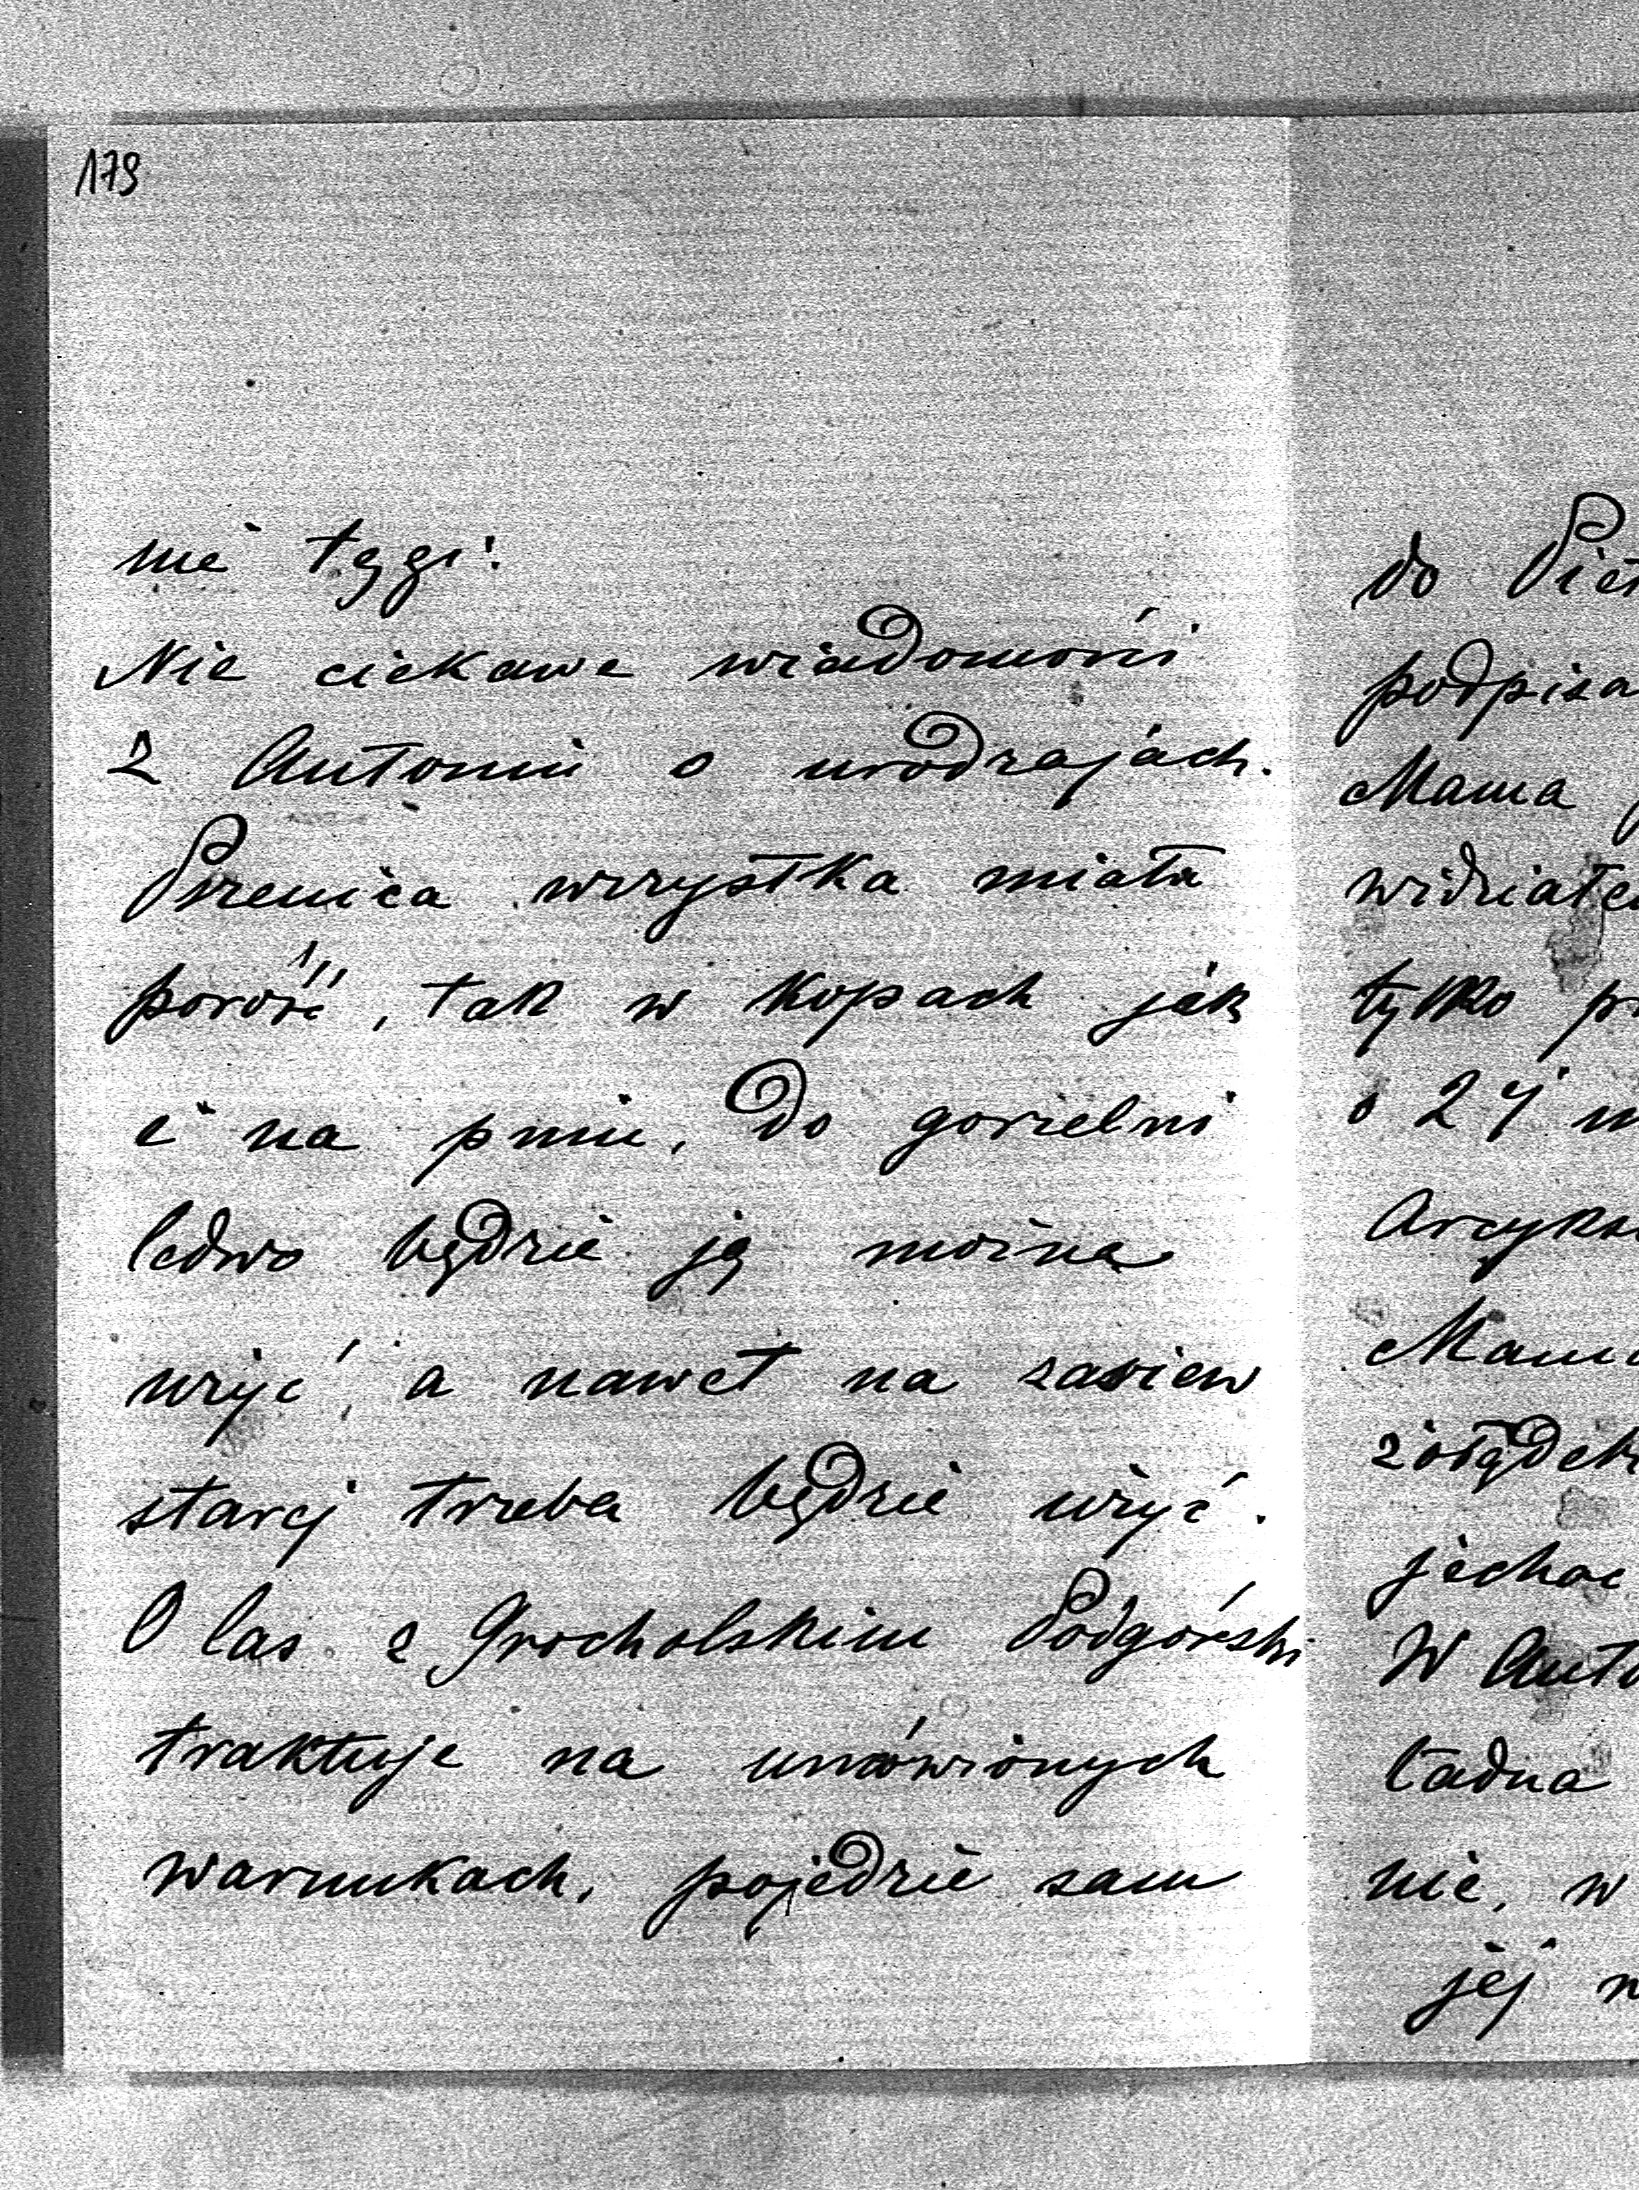 179
nie tęgi.
Nie ciekawe wiadomości
z Antonin o urodzajach.
Pszenica wszystka miała
porość, tak w kopach jak
i na pniu. Do gorzelni
ledwo będzie ją można
użyć, a nawet na zasiew
starej trzeba będzie użyć.
O las z Grocholskim Podgórski
traktuje na umówionych
warunkach, pojedzie sam
do Piet
podpisa
Mama
widziałe
tylko pr
o 27 m
Arcyks
Mama
żołądek
jechać
W Anto
ładna
nie, w
jej n